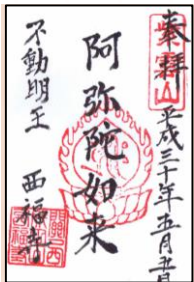 奉拝
平成三十年五月五日
阿弥陀如来
不動明王
西福寺